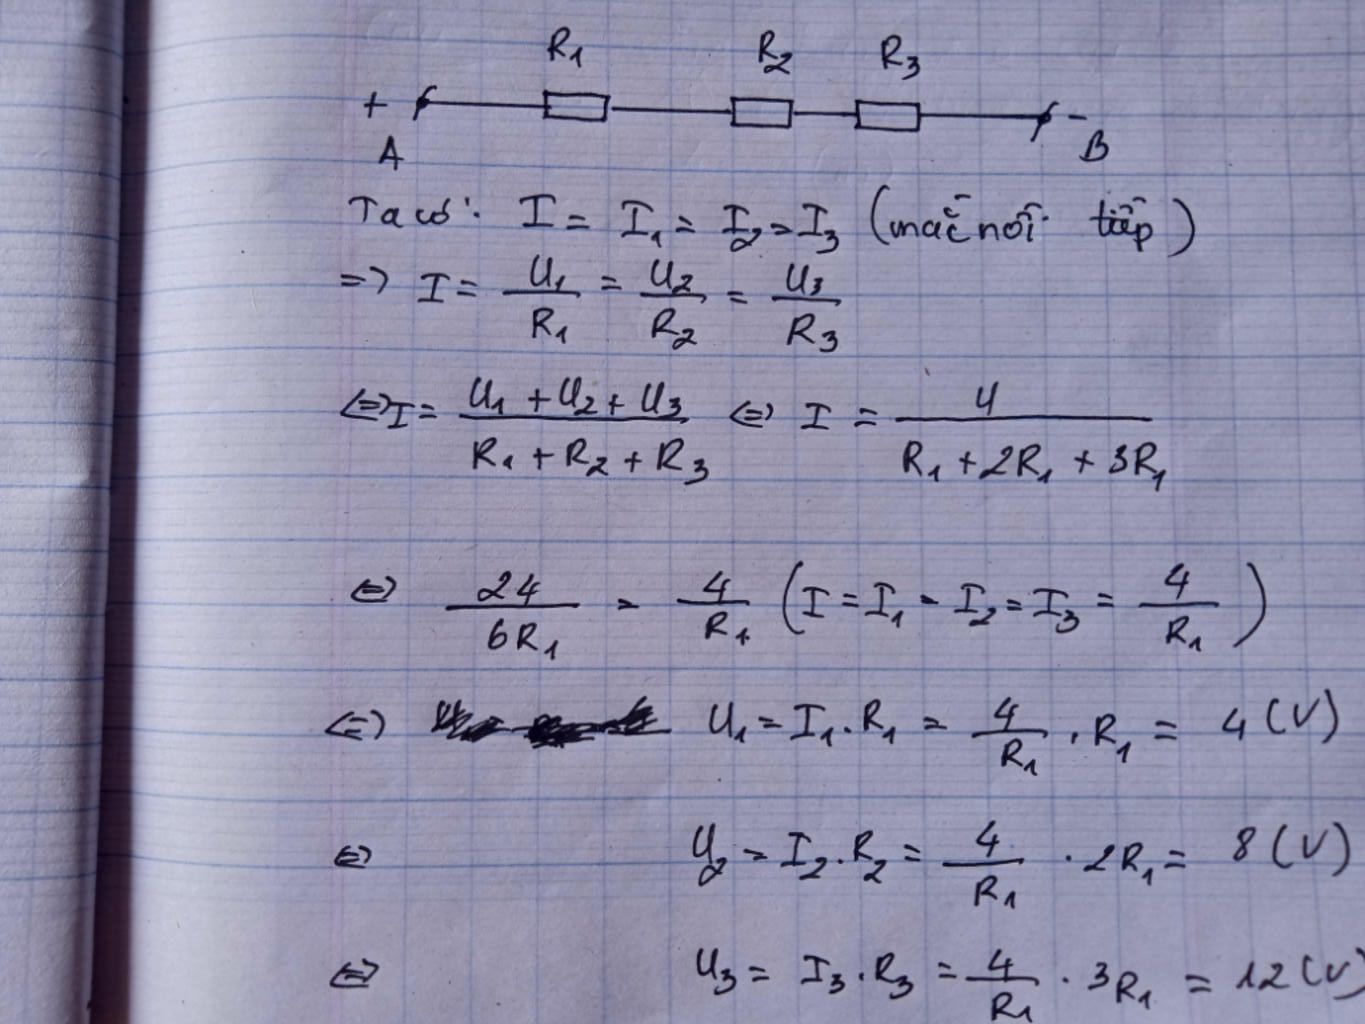 R1 R2 R3
+ -
A B
Ta có: I = I1 = I2 = I3 (mắc nối tiếp)
=> I = U1/R1 = U2/R2 = U3/R3
<=> I = (U1 + U2 + U3)/(R1 + R2 + R3) <=> I = U/(R1 + 2R1 + 3R1)
<=> 24/6R1 = 4/R1 (I = I1 = I2 = I3 = 4/R1)
<=> U1 = I1.R1 = 4/R1 . R1 = 4 (V)
<=> U2 = I2.R2 = 4/R1 . 2R1 = 8 (V)
<=> U3 = I3.R3 = 4/R1 . 3R1 = 12 (V)